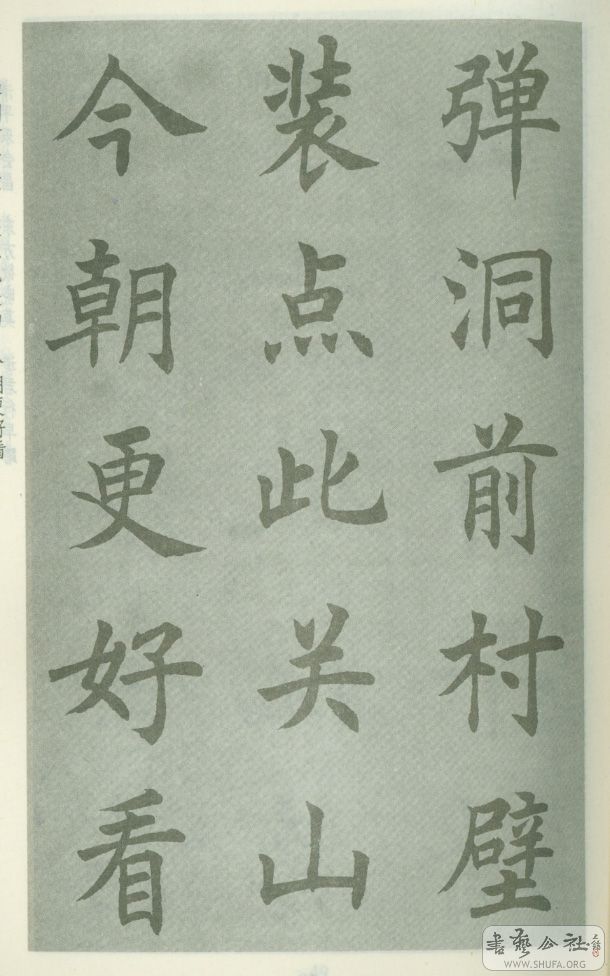 弹洞前村壁
装点此关山
今朝更好看
書藝公社
WWW.SHUFA.ORG